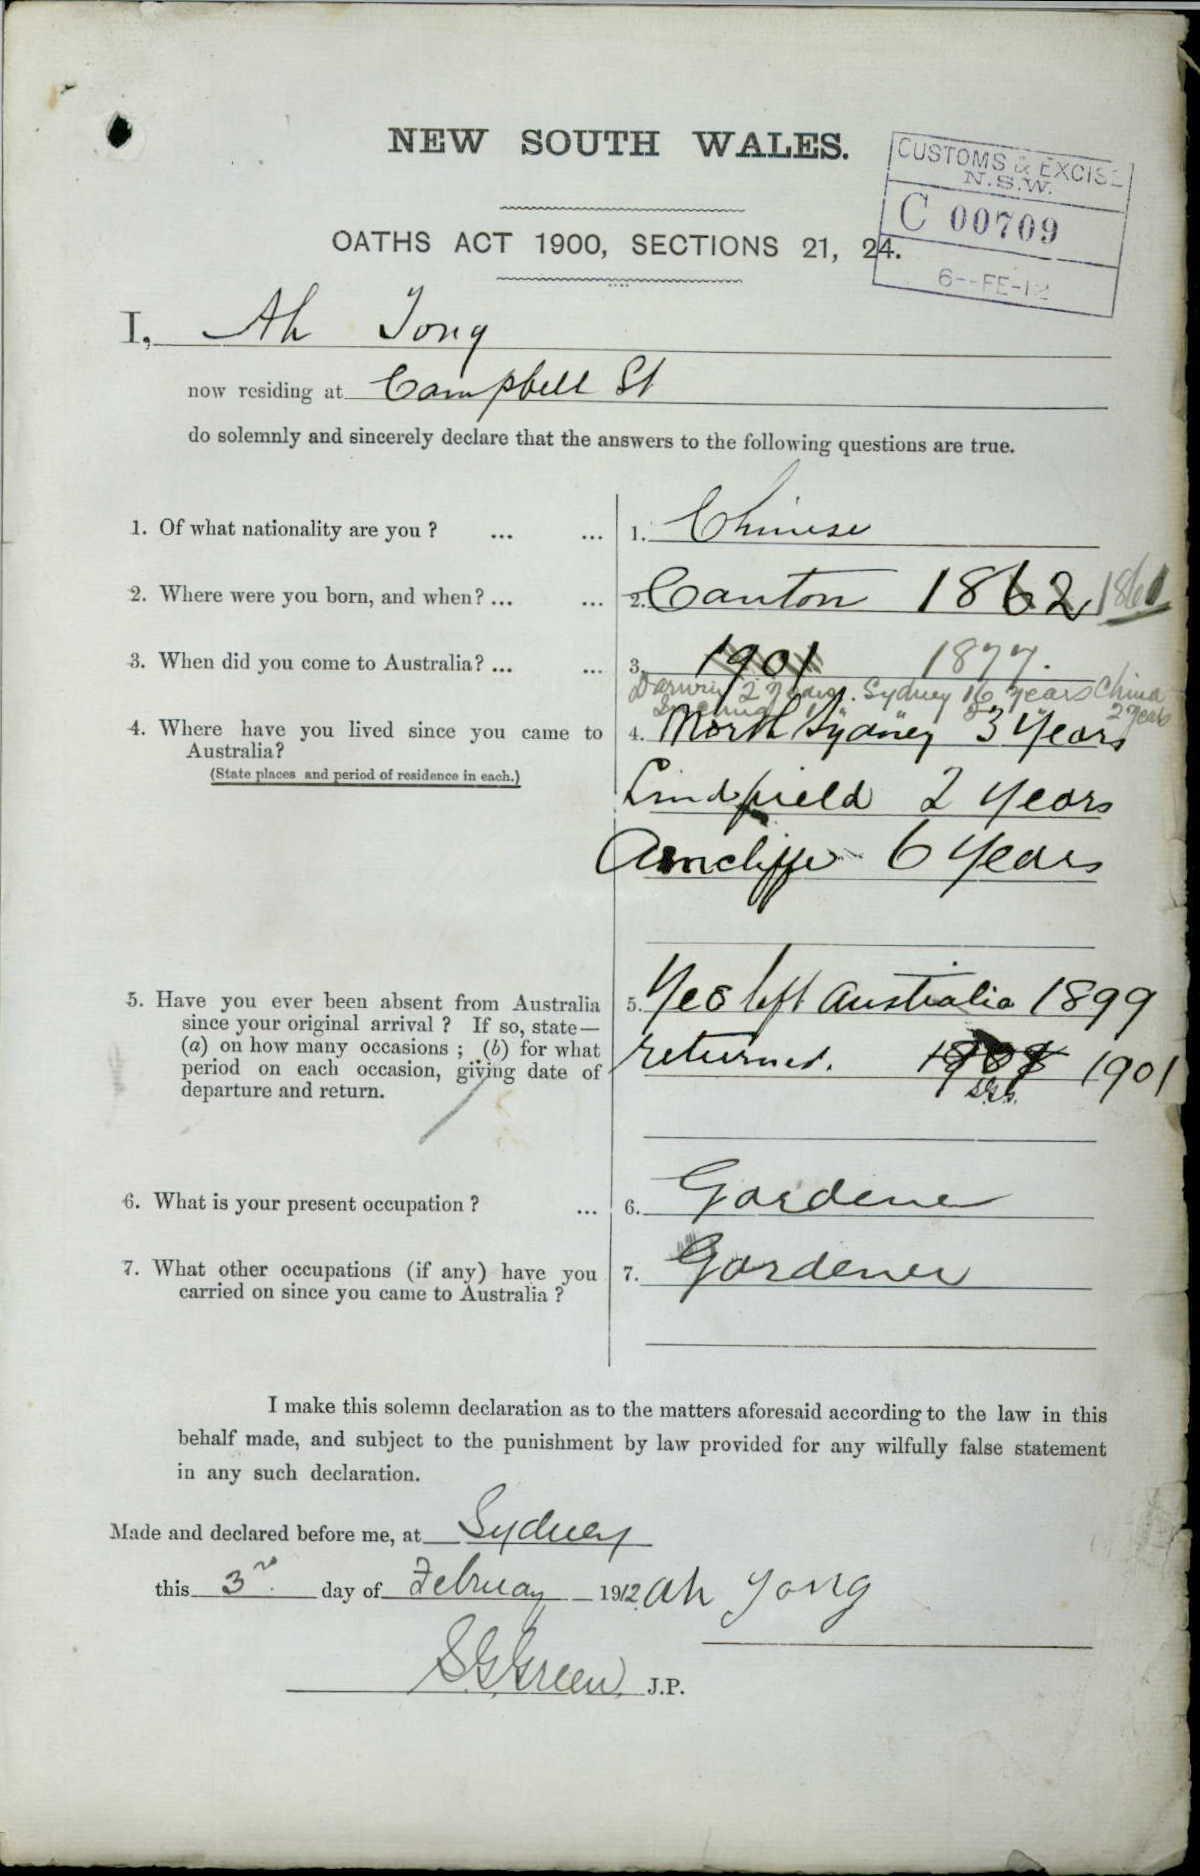 NEW SOUTH WALES.
CUSTOMS & EXCISE
N.S.W.
C 00709
6--FE-12
OATHS ACT 1900, SECTIONS 21, 24.
I, Ah Tong
now residing at Campbell St
do solemnly and sincerely declare that the answers to the following questions are true.
1. Of what nationality are you ? ... ... 1. Chinese
2. Where were you born, and when? ... ... 2. Canton 1862 1861
3. When did you come to Australia? ... ... 3. 1901 1877.
Darwin 2 years. Sydney 16 years China
2 years
4. Where have you lived since you came to 4. North Sydney 3 Years
Australia?
(State places and period of residence in each.)
Lindfield 2 Years
Arncliffe 6 Years
5. Have you ever been absent from Australia 5. Yes left Australia 1899
since your original arrival ? If so, state—
(a) on how many occasions ; (b) for what returned. 1901
period on each occasion, giving date of
departure and return.
6. What is your present occupation ? ... 6. Gardener
7. What other occupations (if any) have you 7. Gardener
carried on since you came to Australia ?
I make this solemn declaration as to the matters aforesaid according to the law in this
behalf made, and subject to the punishment by law provided for any wilfully false statement
in any such declaration.
Made and declared before me, at Sydney
this 3rd day of February 1912. Ah Yong
S.G. Green J.P.